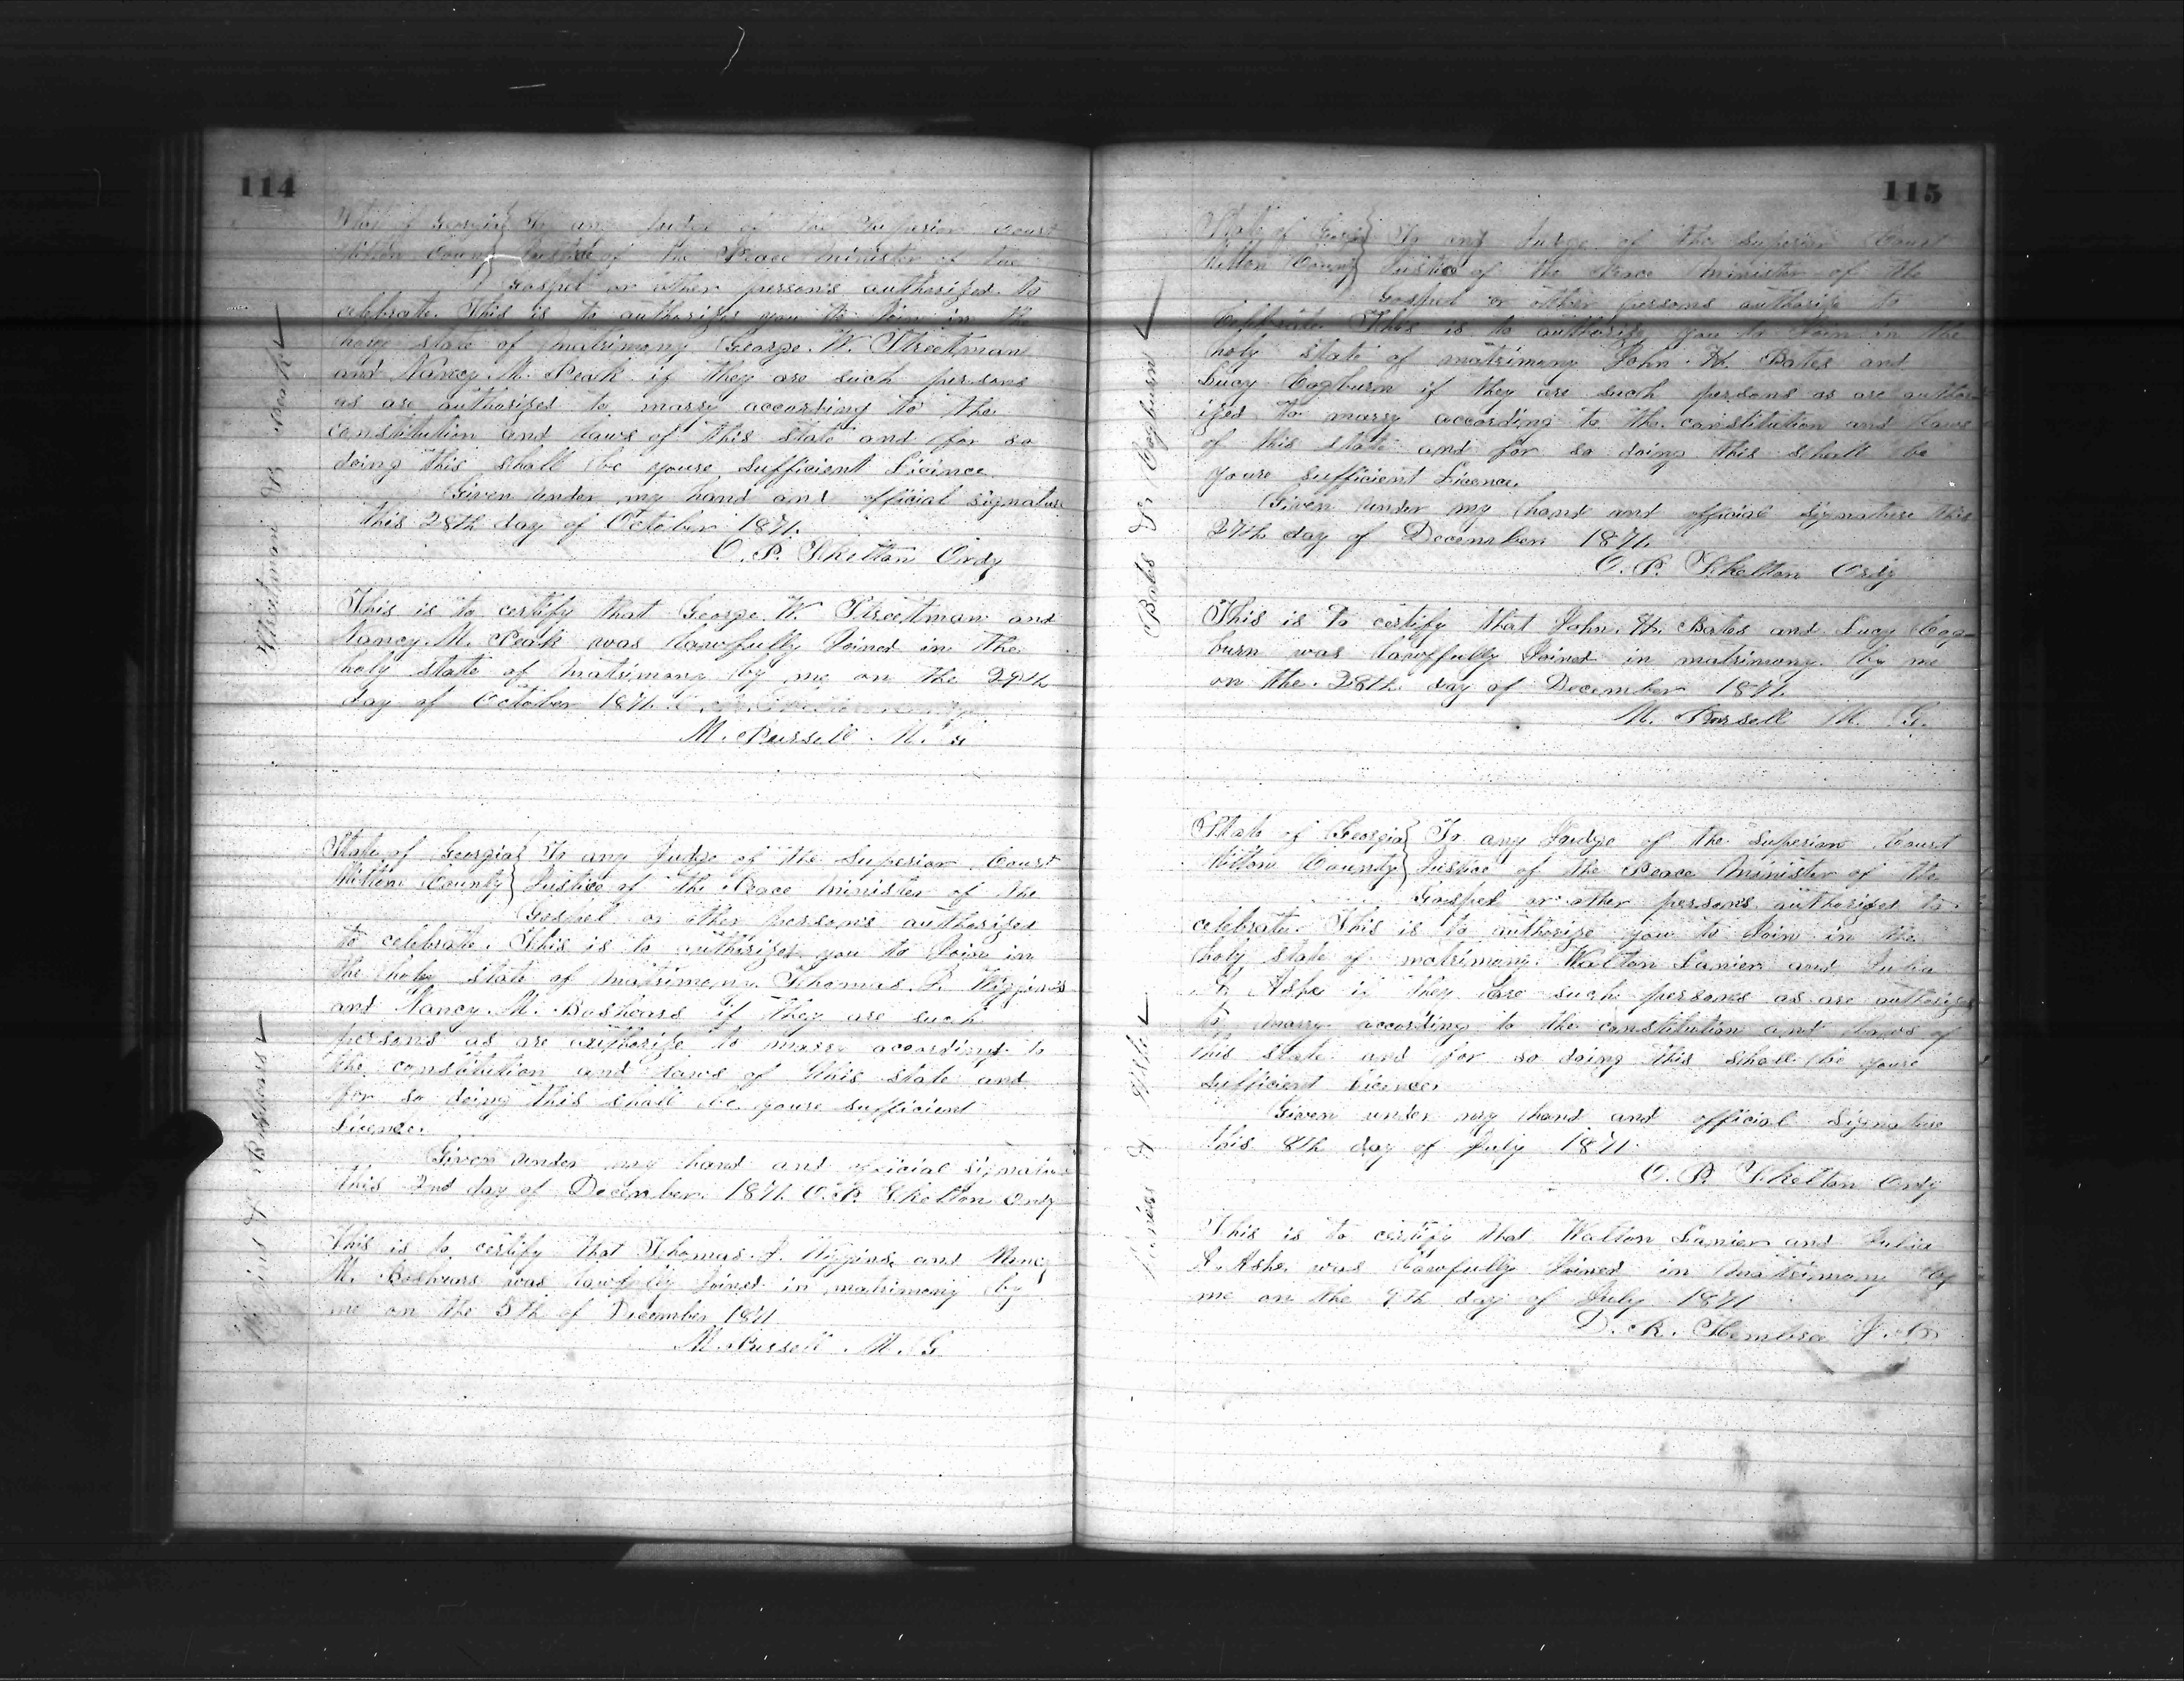 114
State of Georgia } To any Judge of the Superior Court
Milton County } Justice of the Peace Minister of the
Gospel or other persons authorized to
celebrate. This is to authorize you to Join in the
holy state of Matrimony George. W. Streetman
and Nancy. M. Peak if they are such persons
as are authorized to marry according to the
constitution and laws of this state and for so
doing this shall be youre sufficient Licince
Given under my hand and official signature
this 28th day of October 1871.
O. P. Skelton Ordy
This is to certify that George. W. Streetman and
Nancy. M. Peak was lawfully Joined in the
holy state of Matrimony by me on the 29th
day of October 1871.
M. Pursell. M. G
Streetman & Peak
State of Georgia } To any Judge of the Superior Court
Milton County } Justice of the Peace Minister of the
Gospel or other persons authorized
to celebrate. This is to authorize you to Join in
the holy state of Matrimony. Thomas. J. Wiggins
and Nancy. M. Boshears if they are such
persons as are authorize to marry according to
the constitution and laws of this state and
for so doing this shall be youre sufficient
Licence.
Given under my hand and official signature
this 2nd day of December. 1871. O. P. Skelton Ordy
This is to certify that Thomas. J. Wiggins. and Nancy
M. Boshears was lawfully Joined in matrimony by
me on the 5th of December 1871
M. Pursell. M. G
& Boshears
115
State of Georgia } To any Judge of the Superior Court
Milton County } Justice of the Peace Minister of the
Gospel or other persons authorize to
Celebrate. This is to authorize you to Join in the
holy state of matrimony John. H. Bates and
Lucy Cogburn if they are such persons as are author
ized to marry according to the constitution and laws
of this state and for so doing this shall be
youre sufficient Licence.
Given under my hand and official signature this
27th day of December 1871.
O. P. Skelton Ordy
This is to certify that John. H. Bates and Lucy Cog
burn was lawffully Joined in matrimony by me
on the 28th day of December 1871.
M. Pursell M. G.
Bates & Cogburn
State of Georgia } To any Judge of the Superior Court
Milton County } Justice of the Peace Minister of the
Gospel or other persons authorized to
celebrate. This is to authorize you to Join in the
holy state of matrimony. Walton Lanier and Julia
A. Ashe if they are such persons as are authorize
to marry according to the constitution and laws of
this state and for so doing this shall be youre
sufficient licence.
Given under my hand and official signature
this 8th day of July 1871.
O. P. Skelton Ordy
This is to certify that Walton Lanier and Julia
A. Ashe. was lawfully Joined in Matrimony by
me on the 9th day of July 1871
D. R. Hembree J. P.
Lanier & Ashe